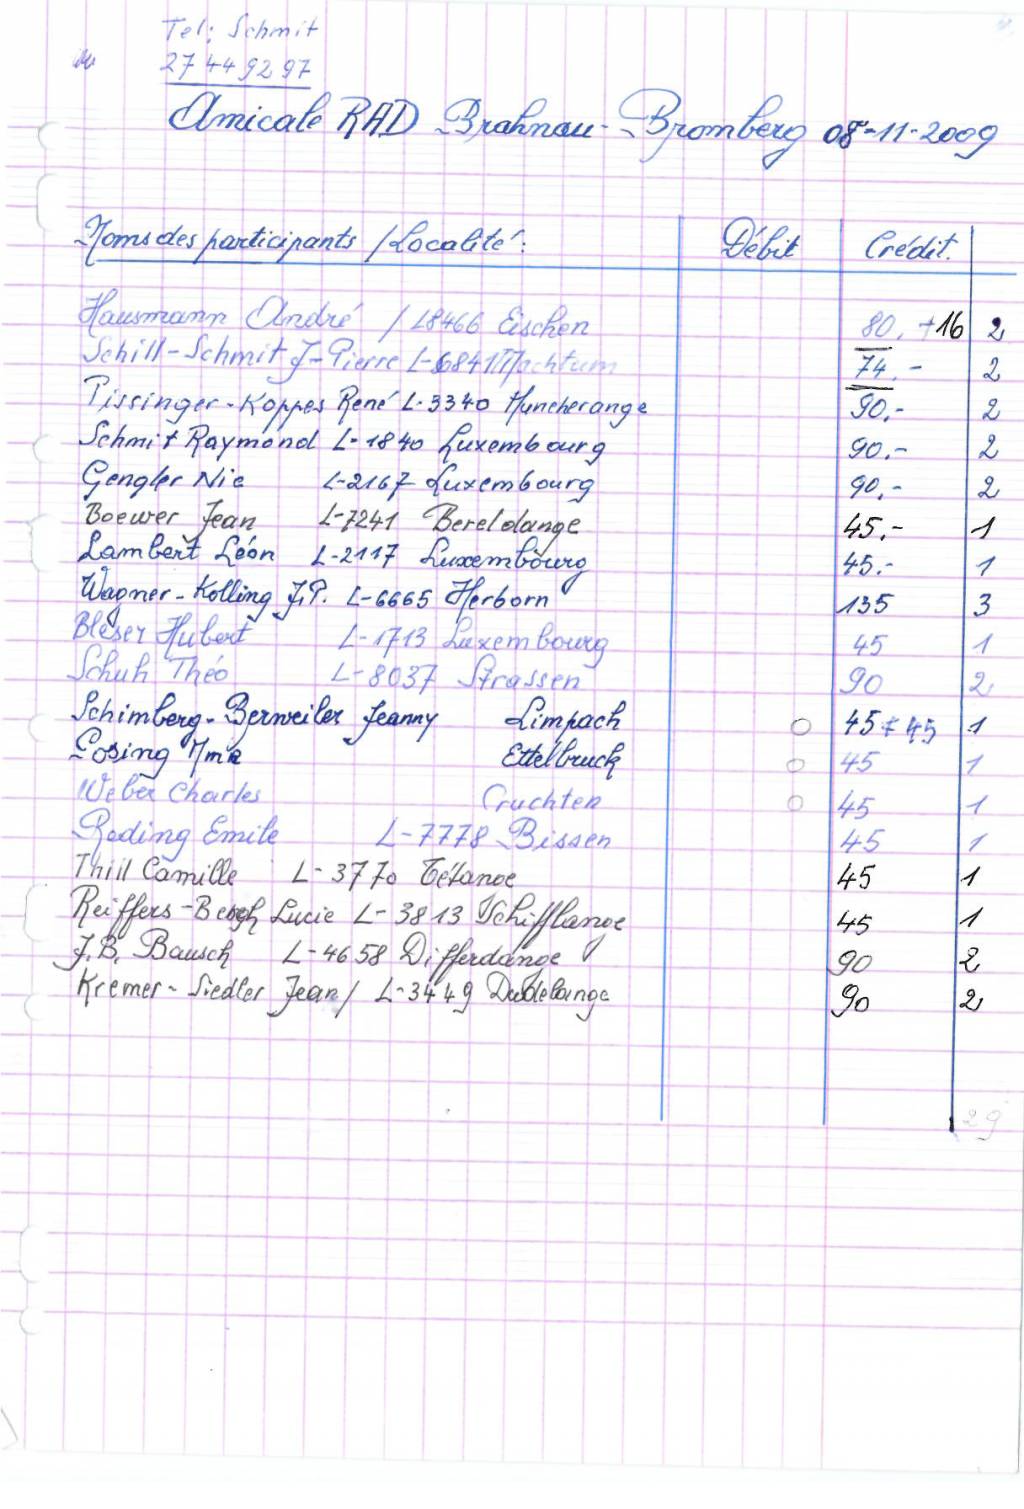 Tel: Schmit
27 44 92 97
Amicale RAD Brahnau-Bromberg 08-11-2009
Noms des participants / Localité: Débit Crédit.
Hausmann André / L8466 Eischen 80.+16 2
Schill-Schmit J-Pierre L-6841 Machtum 74.- 2
Pissinger-Koppes René L-3340 Huncherange 90.- 2
Schmit Raymond L-1840 Luxembourg 90.- 2
Gengler Nic L-2167 Luxembourg 90.- 2
Boewer Jean L-7241 Bereldange 45.- 1
Lambert Léon L-2117 Luxembourg 45.- 1
Wagner-Kolling J.P. L-6665 Herborn 135 3
Bleser Hubert L-1713 Luxembourg 45 1
Schuh Théo L-8037 Strassen 90 2
Schimberg-Berweiler Jeanny Limpach 45 + 45 1
Losing Mme Ettelbruck 45 1
Weber Charles Cruchten 45 1
Reding Emile L-7778 Bissen 45 1
Thill Camille L-3770 Tétange 45 1
Reiffers-Lucie L-3813 Schifflange 45 1
J.B. Bausch L-4658 Differdange 90 2
Kremer-Siedler Jean / L-3449 Dudelange 90 2
29